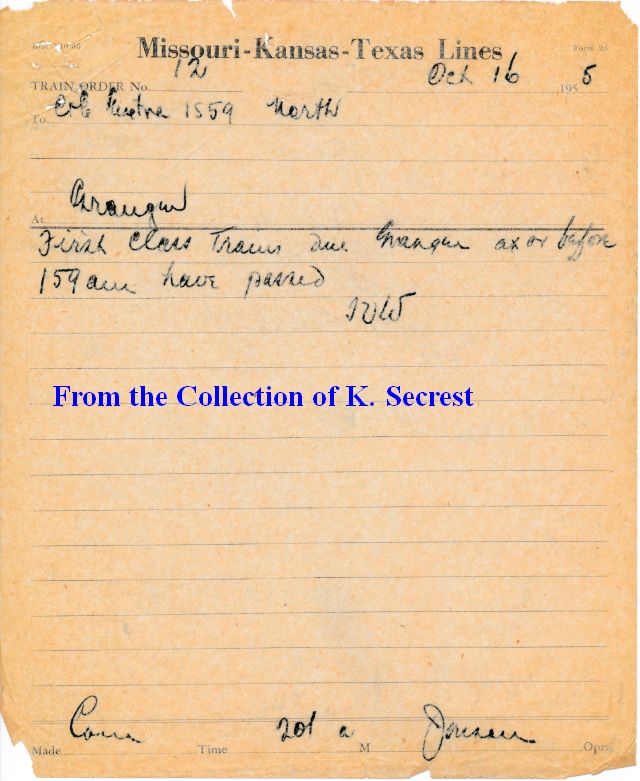 Missouri-Kansas-Texas Lines
Form 26
TRAIN ORDER No. 12 Oct 16 1955
To C&E Extra 1559 North
At Granger
First Class Trains due Granger at or before
159 am have passed
From the Collection of K. Secrest
Made Com Time 201 a M Opr.